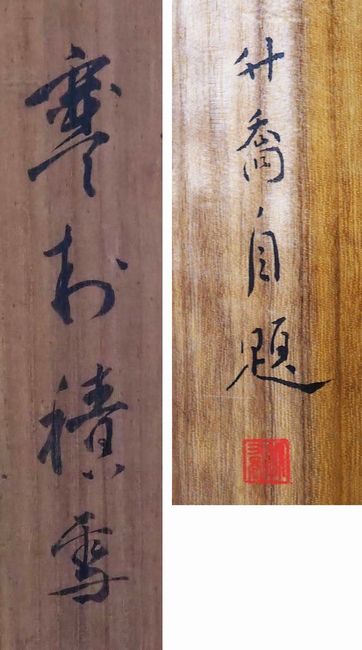 寒村積雪
竹喬自題